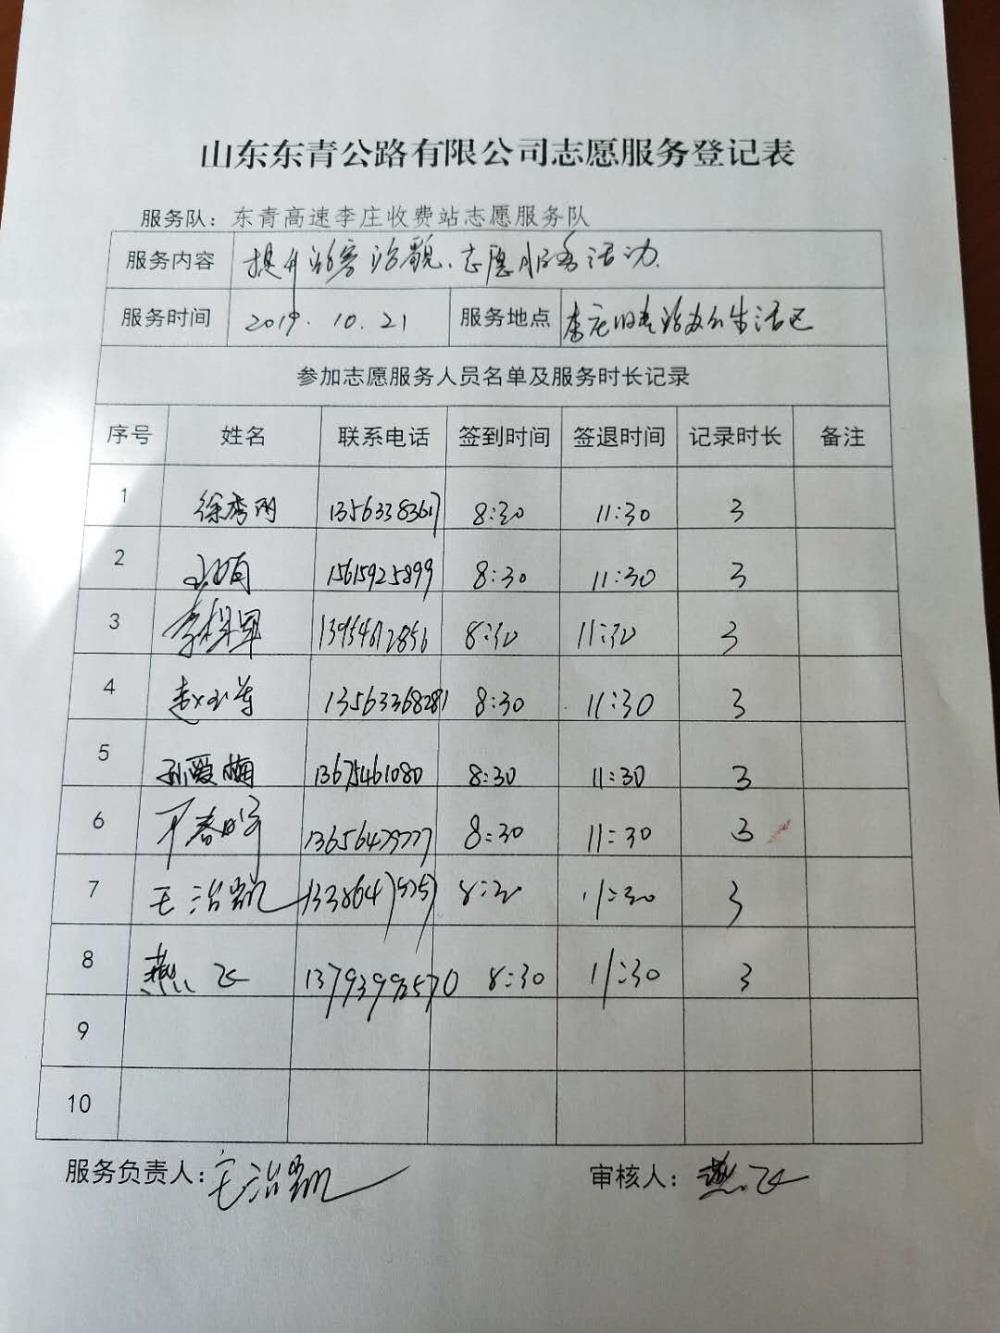 山东东青公路有限公司志愿服务登记表
服务队：东青高速李庄收费站志愿服务队
服务内容 提升站容站貌、志愿服务活动.
服务时间 2019.10.21 服务地点 李庄收费站办公生活区
参加志愿服务人员名单及服务时长记录
序号 姓名 联系电话 签到时间 签退时间 记录时长 备注
1 徐秀 13563383617 8:30 11:30 3
2 15615925899 8:30 11:30 3
3 李 13954612856 8:30 11:30 3
4 赵玉 13563368281 8:30 11:30 3
5 孙爱梅 13675461080 8:30 11:30 3
6 春 8:30 11:30 3
7 王治凯 8:30 11:30 3
8 燕飞 8:30 11:30 3
9
10
服务负责人：王治凯 审核人：燕飞